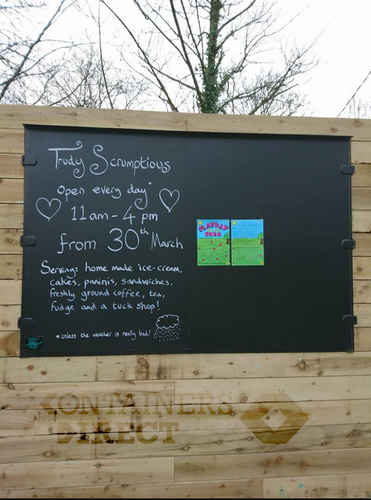 Trudy Scrumptious
Open every day*
11am - 4pm
from 30th March
Serving: home made ice-cream,
cakes, paninis, sandwiches,
freshly ground coffee, tea,
fudge and a tuck shop!
* unless the weather is really bad!
PLAYDAY
CONTAINERS
DIRECT